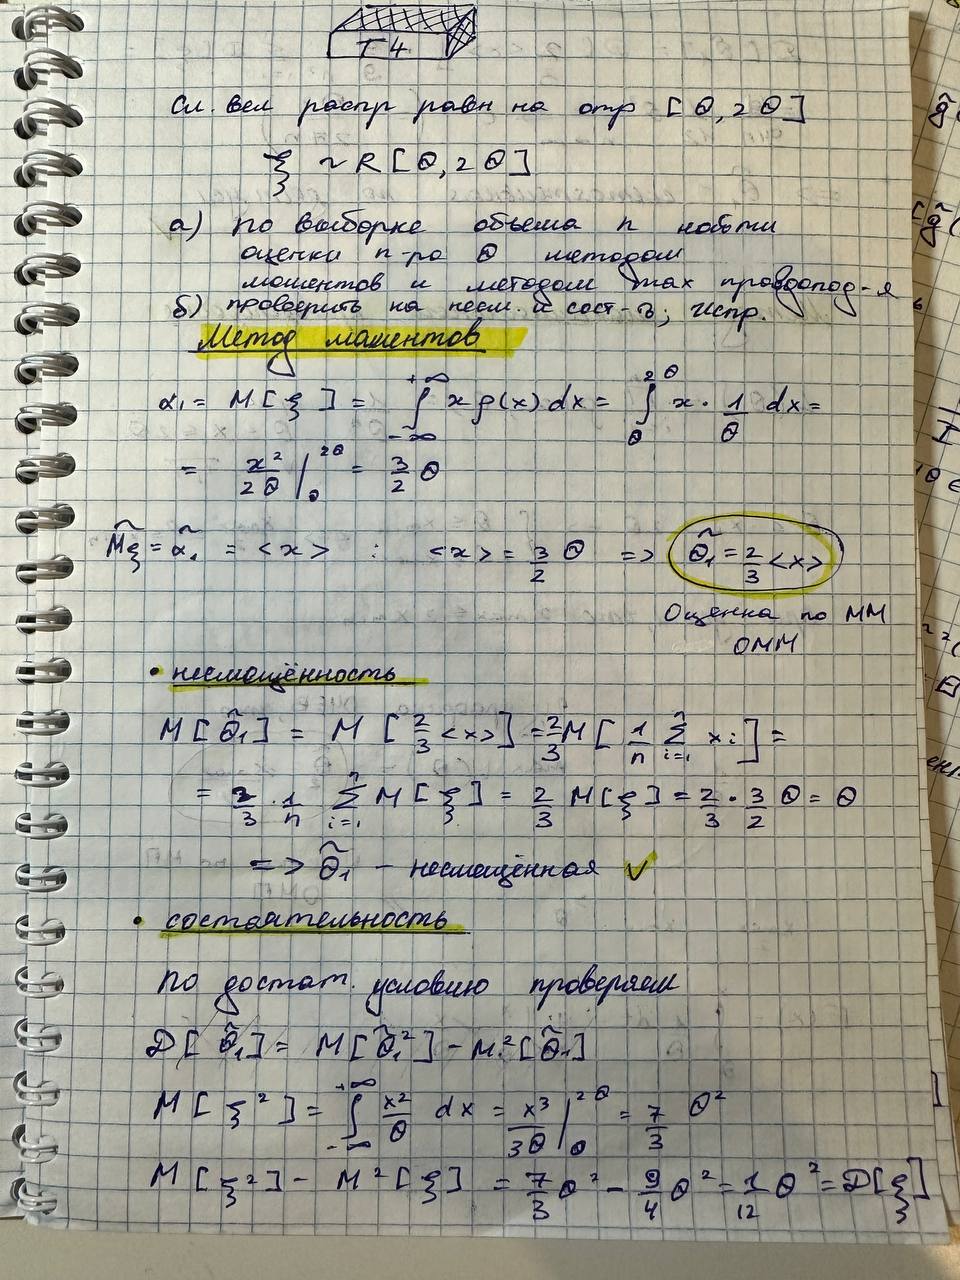 T4
Сл. вел распр равн на отр [θ, 2θ]
ξ ~ R[θ, 2θ]
а) по выборке объема n найти
оценки п-ра θ методом
моментов и методом max правдопод-я
б) проверить на несм. и сост-ть; испр.
Метод моментов
α₁ = M[ξ] = ∫_{-∞}^{+∞} x p(x) dx = ∫_θ^{2θ} x · 1/θ dx =
= x²/2θ |_θ^{2θ} = 3/2 θ
M̃ξ = α̃₁ = <x> : <x> = 3/2 θ => θ̃₁ = 2/3 <x>
Оценка по ММ
ОММ
• несмещённость
M[θ̃₁] = M[2/3 <x>] = 2/3 M[1/n Σ_{i=1}^n xi] =
= 2/3 · 1/n Σ_{i=1}^n M[ξ] = 2/3 M[ξ] = 2/3 · 3/2 θ = θ
=> θ̃₁ – несмещённая ✓
• состоятельность
по достат. условию проверяем
D[θ̃₁] = M[θ̃₁²] – M²[θ̃₁]
M[ξ²] = ∫_{-∞}^{+∞} x²/θ dx = x³/3θ |_θ^{2θ} = 7/3 θ²
M[ξ²] – M²[ξ] = 7/3 θ² – 9/4 θ² = 1/12 θ² = D[ξ]